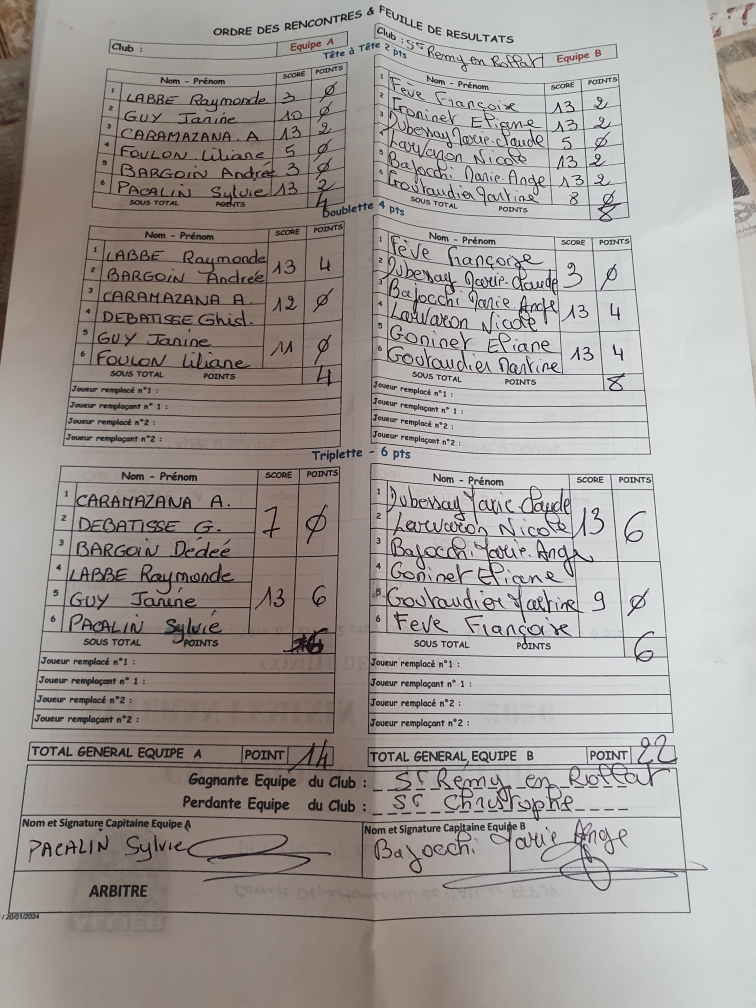 ORDRE DES RENCONTRES & FEUILLE DE RESULTATS
Club : Equipe A
Club : St Remy en Rollat Equipe B
Tête à Tête 2 pts
Nom - Prénom SCORE POINTS
1 LABBE Raymonde 3 0
2 GUY Janine 10 0
3 CARAMAZANA. A 13 2
4 FOULON Liliane 5 0
5 BARGOIN Andrée 3 0
6 PACALIN Sylvie 13 2
SOUS TOTAL POINTS 4
Nom - Prénom SCORE POINTS
1 Fève Françoise 13 2
2 Goninet Eliane 13 2
3 Dubessay Marie-Claude 5 0
4 Larvaron Nicole 13 2
5 Bajocchi Marie-Ange 13 2
6 Goutaudier Martine 8 0
SOUS TOTAL POINTS 8
Doublette 4 pts
Nom - Prénom SCORE POINTS
1 LABBE Raymonde
2 BARGOIN Andrée 13 4
3 CARAMAZANA A.
4 DEBATISSE Ghisl. 12 0
5 GUY Janine
6 FOULON Liliane 11 0
SOUS TOTAL POINTS 4
Joueur remplacé n°1 :
Joueur remplaçant n° 1 :
Joueur remplacé n°2 :
Joueur remplaçant n°2 :
Nom - Prénom SCORE POINTS
1 Fève Françoise
2 Dubessay Marie-Claude 3 0
3 Bajocchi Marie Ange
4 Larvaron Nicole 13 4
5 Goninet Eliane
6 Goutaudier Martine 13 4
SOUS TOTAL POINTS 8
Joueur remplacé n°1 :
Joueur remplaçant n° 1 :
Joueur remplacé n°2 :
Joueur remplaçant n°2 :
Triplette - 6 pts
Nom - Prénom SCORE POINTS
1 CARAMAZANA A.
2 DEBATISSE G. 7 0
3 BARGOIN Dédée
4 LABBE Raymonde
5 GUY Janine 13 6
6 PACALIN Sylvie
SOUS TOTAL POINTS 6
Joueur remplacé n°1 :
Joueur remplaçant n° 1 :
Joueur remplacé n°2 :
Joueur remplaçant n°2 :
Nom - Prénom SCORE POINTS
1 Dubessay Marie Claude
2 Larvaron Nicole 13 6
3 Bajocchi Marie-Ange
4 Goninet Eliane
5 Goutaudier Martine 9 0
6 Feve Françoise
SOUS TOTAL POINTS 6
Joueur remplacé n°1 :
Joueur remplaçant n° 1 :
Joueur remplacé n°2 :
Joueur remplaçant n°2 :
TOTAL GENERAL EQUIPE A POINT 14
TOTAL GENERAL EQUIPE B POINT 22
Gagnante Equipe du Club : St Remy en Rollat
Perdante Equipe du Club : St Christophe
Nom et Signature Capitaine Equipe A
PACALIN Sylvie
Nom et Signature Capitaine Equipe B
Bajocchi Marie Ange
ARBITRE
/ 20/01/2024